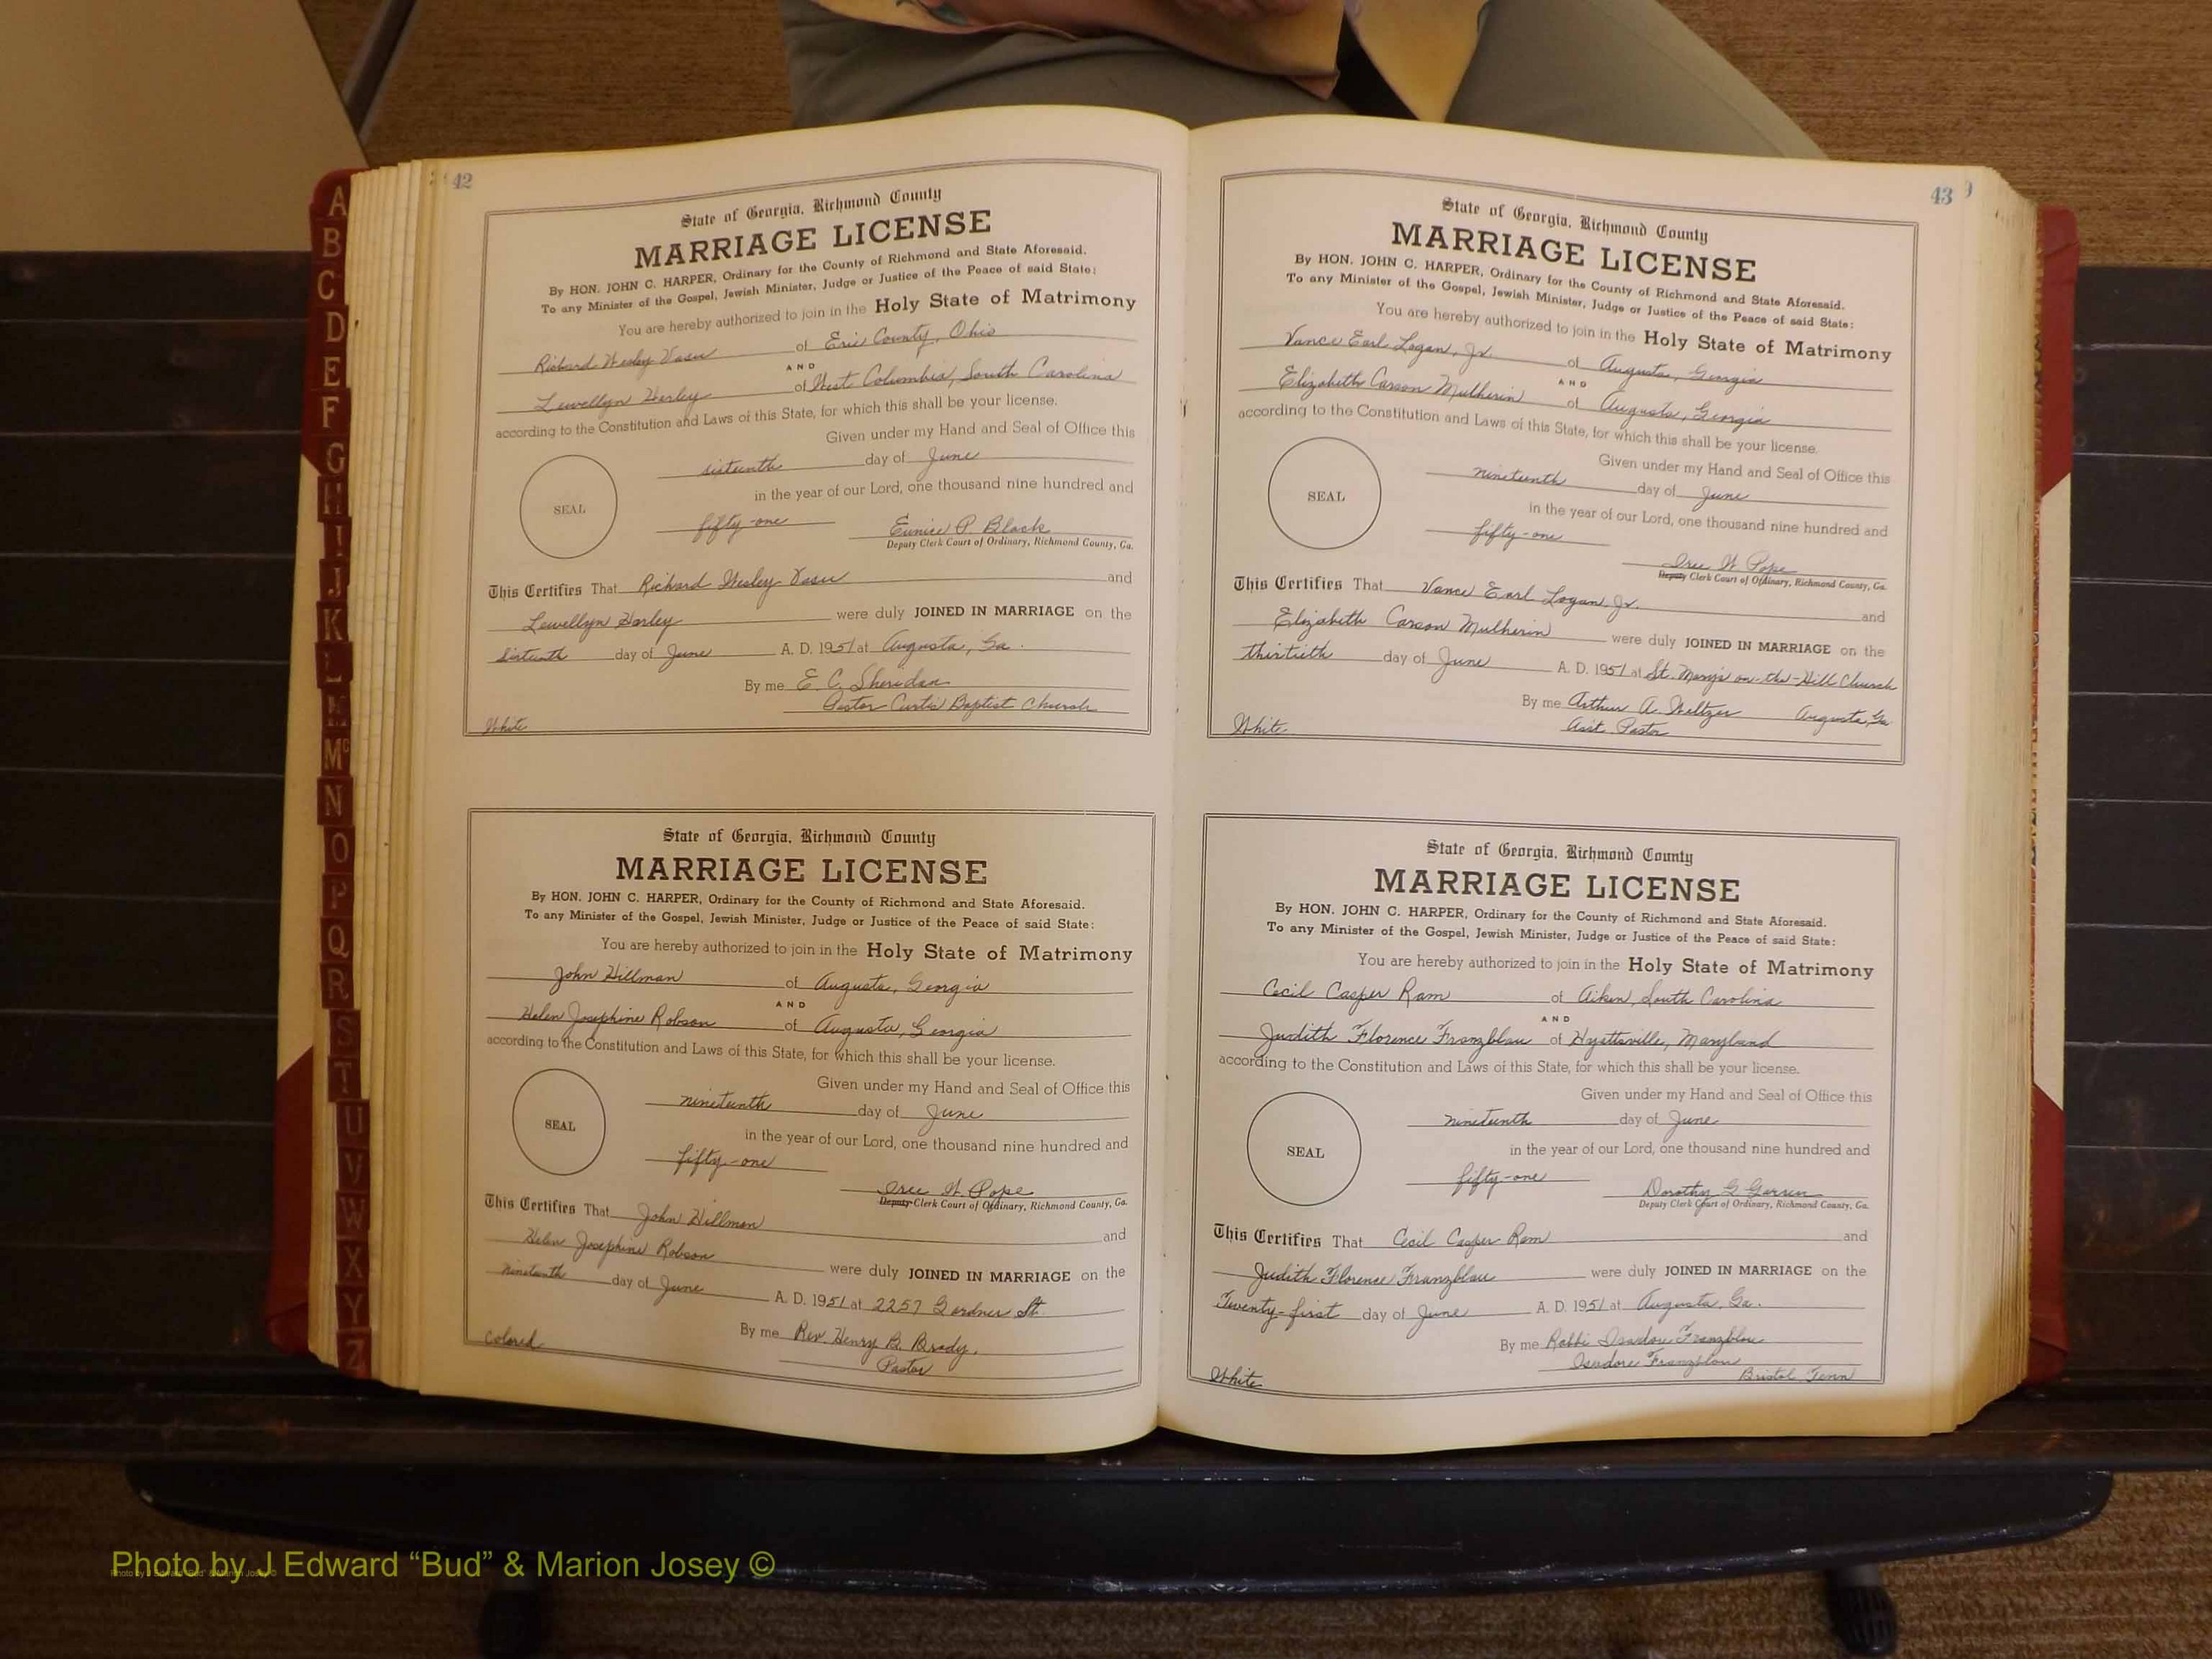 42
State of Georgia, Richmond County
MARRIAGE LICENSE
By HON. JOHN C. HARPER, Ordinary for the County of Richmond and State Aforesaid.
To any Minister of the Gospel, Jewish Minister, Judge or Justice of the Peace of said State:
You are hereby authorized to join in the Holy State of Matrimony
Richard Wesley of Erie County, Ohio
AND
Lewellyn Harley of West Columbia, South Carolina
according to the Constitution and Laws of this State, for which this shall be your license.
Given under my Hand and Seal of Office this
sixteenth day of June
in the year of our Lord, one thousand nine hundred and
SEAL
fifty-one Eunice P. Black
Deputy Clerk Court of Ordinary, Richmond County, Ga.
This Certifies That Richard Wesley and
Lewellyn Harley were duly JOINED IN MARRIAGE on the
Sixteenth day of June A. D. 1951 at Augusta, Ga.
By me E. C. Sheridan
Pastor Curtis Baptist Church
White
State of Georgia, Richmond County
MARRIAGE LICENSE
By HON. JOHN C. HARPER, Ordinary for the County of Richmond and State Aforesaid.
To any Minister of the Gospel, Jewish Minister, Judge or Justice of the Peace of said State:
You are hereby authorized to join in the Holy State of Matrimony
John Hillman of Augusta, Georgia
AND
Helen Josephine Robson of Augusta, Georgia
according to the Constitution and Laws of this State, for which this shall be your license.
Given under my Hand and Seal of Office this
nineteenth day of June
in the year of our Lord, one thousand nine hundred and
SEAL
fifty-one
W. Pope
Deputy Clerk Court of Ordinary, Richmond County, Ga.
This Certifies That John Hillman and
Helen Josephine Robson were duly JOINED IN MARRIAGE on the
Nineteenth day of June A. D. 1951 at 2257 Gardner St.
By me Rev. Henry B. Brady,
Pastor
Colored
43
State of Georgia, Richmond County
MARRIAGE LICENSE
By HON. JOHN C. HARPER, Ordinary for the County of Richmond and State Aforesaid.
To any Minister of the Gospel, Jewish Minister, Judge or Justice of the Peace of said State:
You are hereby authorized to join in the Holy State of Matrimony
Vance Earl Logan, Jr. of Augusta, Georgia
AND
Elizabeth Carson Mulherin of Augusta, Georgia
according to the Constitution and Laws of this State, for which this shall be your license.
Given under my Hand and Seal of Office this
nineteenth day of June
in the year of our Lord, one thousand nine hundred and
SEAL
fifty-one
W. Pope
Deputy Clerk Court of Ordinary, Richmond County, Ga.
This Certifies That Vance Earl Logan, Jr. and
Elizabeth Carson Mulherin were duly JOINED IN MARRIAGE on the
thirtieth day of June A. D. 1951 at St. Mary's on-the-Hill Church
By me Arthur A. Weltzer Augusta, Ga
Asst. Pastor
White
State of Georgia, Richmond County
MARRIAGE LICENSE
By HON. JOHN C. HARPER, Ordinary for the County of Richmond and State Aforesaid.
To any Minister of the Gospel, Jewish Minister, Judge or Justice of the Peace of said State:
You are hereby authorized to join in the Holy State of Matrimony
Cecil Casper Ram of Aiken, South Carolina
AND
Judith Florence Franzblau of Hyattsville, Maryland
according to the Constitution and Laws of this State, for which this shall be your license.
Given under my Hand and Seal of Office this
nineteenth day of June
in the year of our Lord, one thousand nine hundred and
SEAL
fifty-one
Dorothy G.
Deputy Clerk Court of Ordinary, Richmond County, Ga.
This Certifies That Cecil Casper Ram and
Judith Florence Franzblau were duly JOINED IN MARRIAGE on the
Twenty-first day of June A. D. 1951 at Augusta, Ga.
By me Rabbi Isadore Franzblau
Isadore Franzblau
Bristol Tenn
White
A
B
C
D
E
F
G
H
I
J
K
L
M
Mc
N
O
P
Q
R
S
T
U
V
W
X
Y
Z
Photo by J Edward “Bud” & Marion Josey ©
Photo by J Edward “Bud” & Marion Josey ©